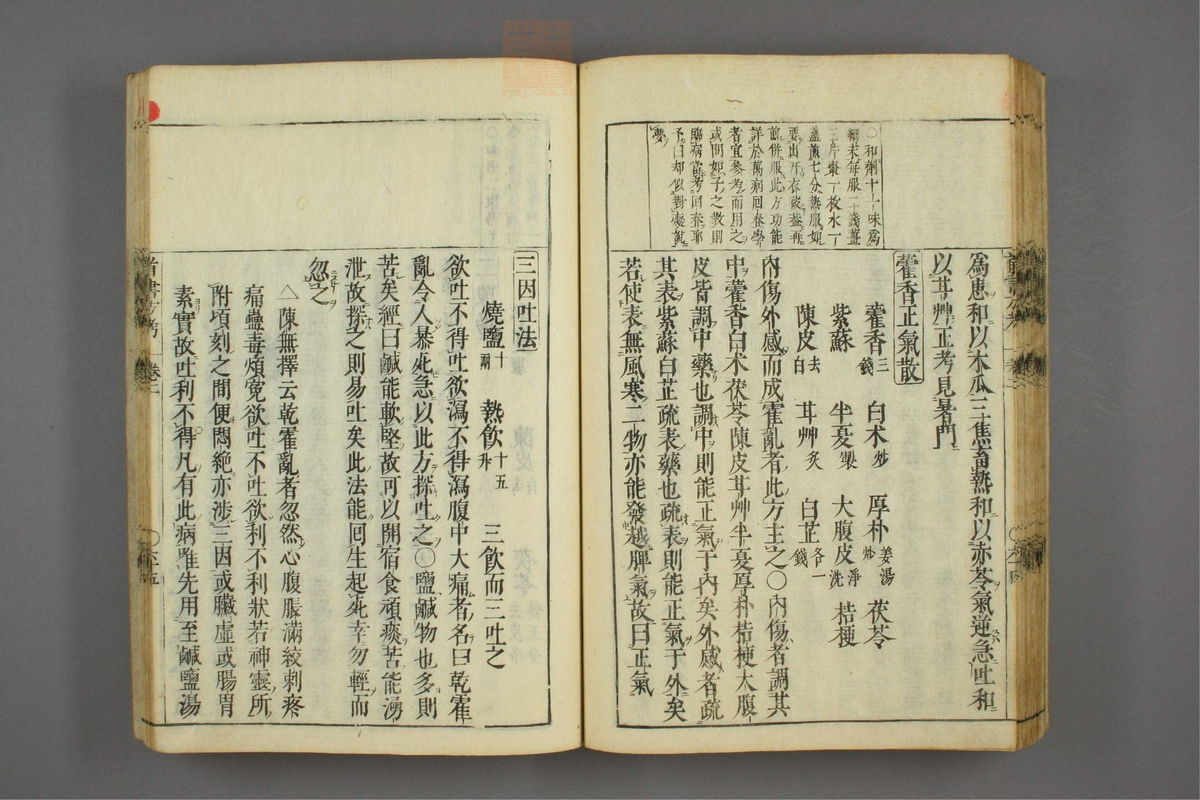 ○和劑十一味爲
細末每服二錢薑
三片棗一枚水一
盞煎七分熱服如
要出汗衣被蓋再
煎併服此方功能
詳於萬病回春學
者宜參考而用之
或問如子之教則
臨病當考回春耶
予曰却似對癡說
夢
爲患和以木瓜三焦畜熱和以赤苓氣逆急吐和
以甘艸正考見暑門
藿香正氣散
藿香三錢 白术炒 厚朴姜湯炒 茯苓
紫蘇 半夏製 大腹皮淨洗 桔梗
陳皮去白 甘艸炙 白芷各一錢
內傷外感而成霍亂者此方主之○內傷者調其
中藿香白术茯苓陳皮甘艸半夏厚朴桔梗大腹
皮皆調中藥也調中則能正氣于內矣外感者疏
其表紫蘇白芷疏表藥也疏表則能正氣于外矣
若使表無風寒二物亦能發越脾氣故曰正氣
三因吐法
燒鹽十兩 熱飲十五升 三飲而三吐之
欲吐不得吐欲瀉不得瀉腹中大痛者名曰乾霍
亂令人暴死急以此方探吐之○鹽鹹物也多則
苦矣經曰鹹能軟堅故可以開宿食頑痰苦能湧
泄故探之則易吐矣此法能回生起死幸勿輕而
忽之
△陳無擇云乾霍亂者忽然心腹脹滿絞刺疼
痛蠱毒煩寃欲吐不吐欲利不利狀若神靈所
附頃刻之間便悶絕亦涉三因或臟虛或腸胃
素實故吐利不得凡有此病唯先用至鹹鹽湯
卷二